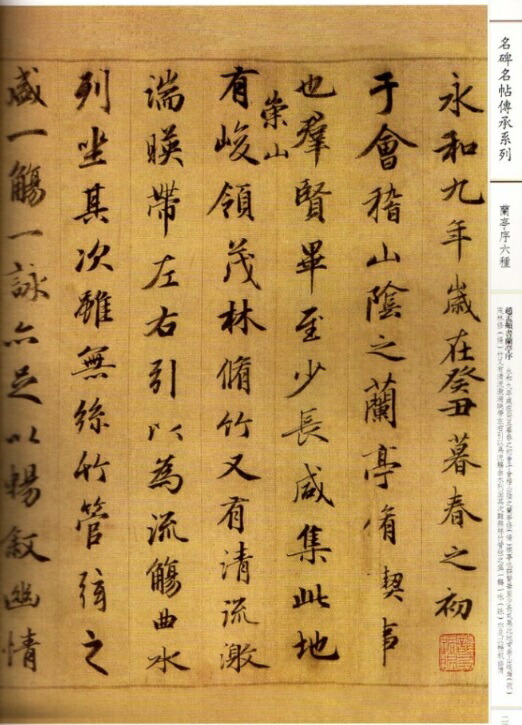 名碑名帖傳承系列
蘭亭序六種
趙孟頫書蘭亭序
永和九年歲在癸丑暮春之初
于會稽山陰之蘭亭脩禊事
也羣賢畢至少長咸集此地
有崇山峻領茂林脩竹又有清流激
湍暎帶左右引以為流觴曲水
列坐其次雖無絲竹管弦之
盛一觴一詠亦足以暢敘幽情